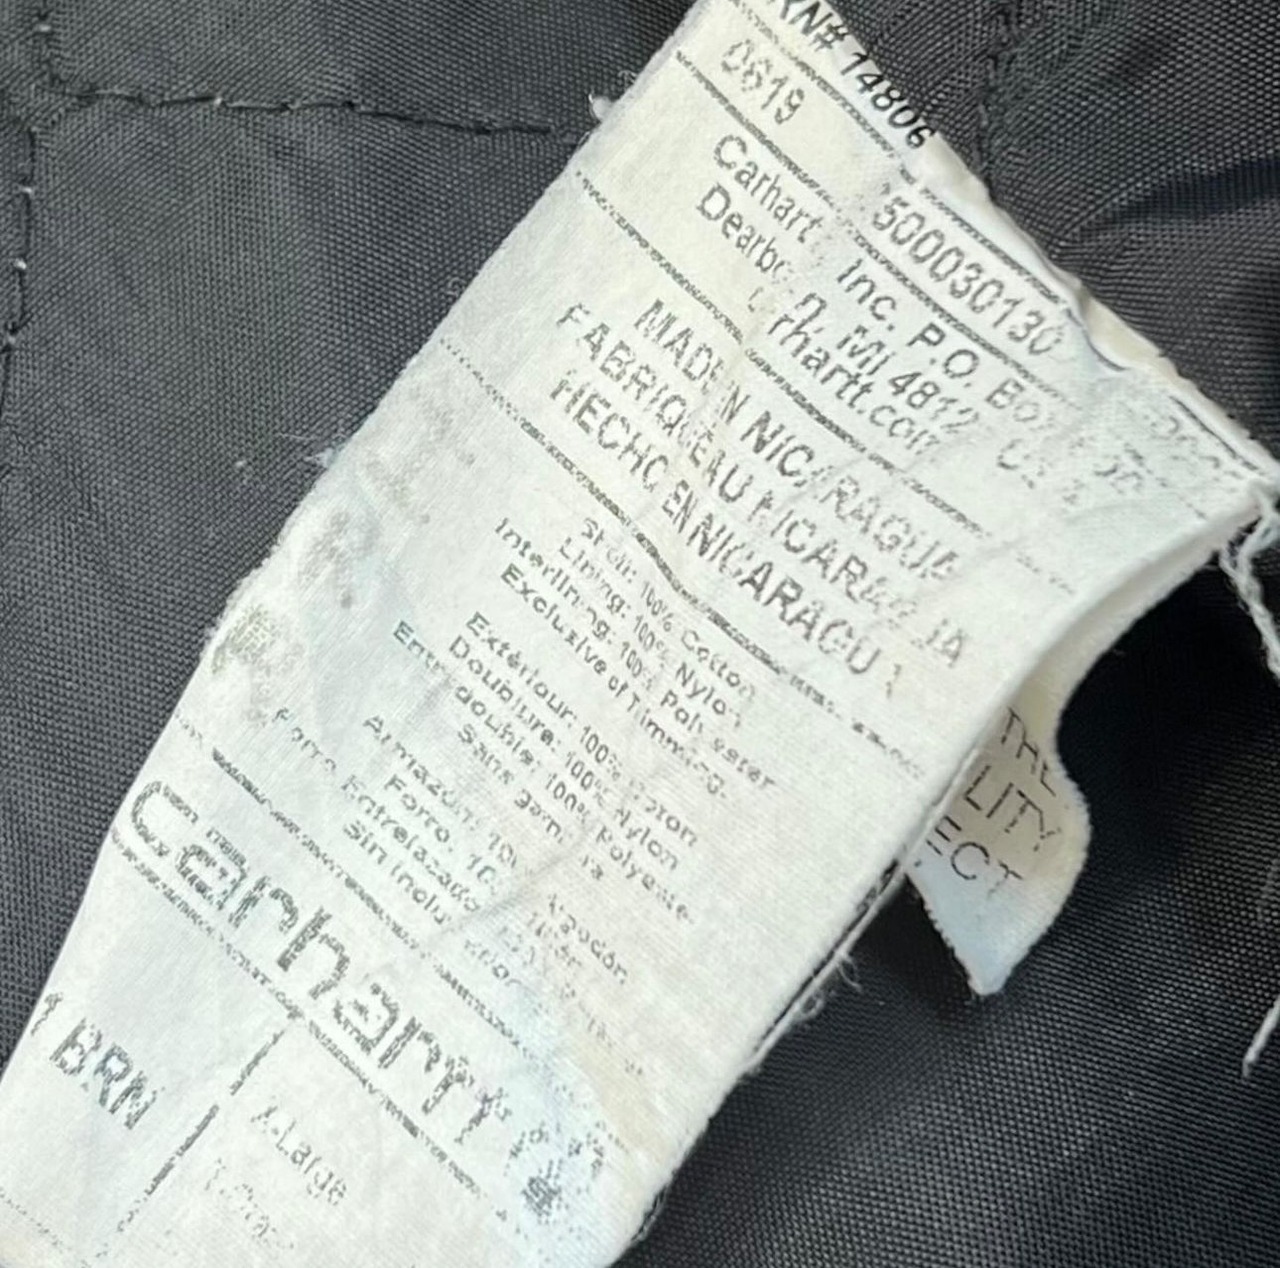 RN# 14806
0619
500030130
Carhart Inc. P.O. Bo
Dearbo n, MI 4812
rhartt.com
MADE IN NICARAGUA
FABRIQUE AU NICARAGUA
HECHO EN NICARAGU
Shell: 100% Cotton
Lining: 100% Nylon
Interlining: 100% Polyester
Exclusive of Trimming.
Extérieur: 100% Coton
Doublure: 100% Nylon
Entre double: 100% Polyeste
Sans garniture
Armazón: 100 Algodón
Forro: 10
forro Entrelazado
Sin Inclu
Carhartt
1 BRN
X-Large
THE
LITY
ECT